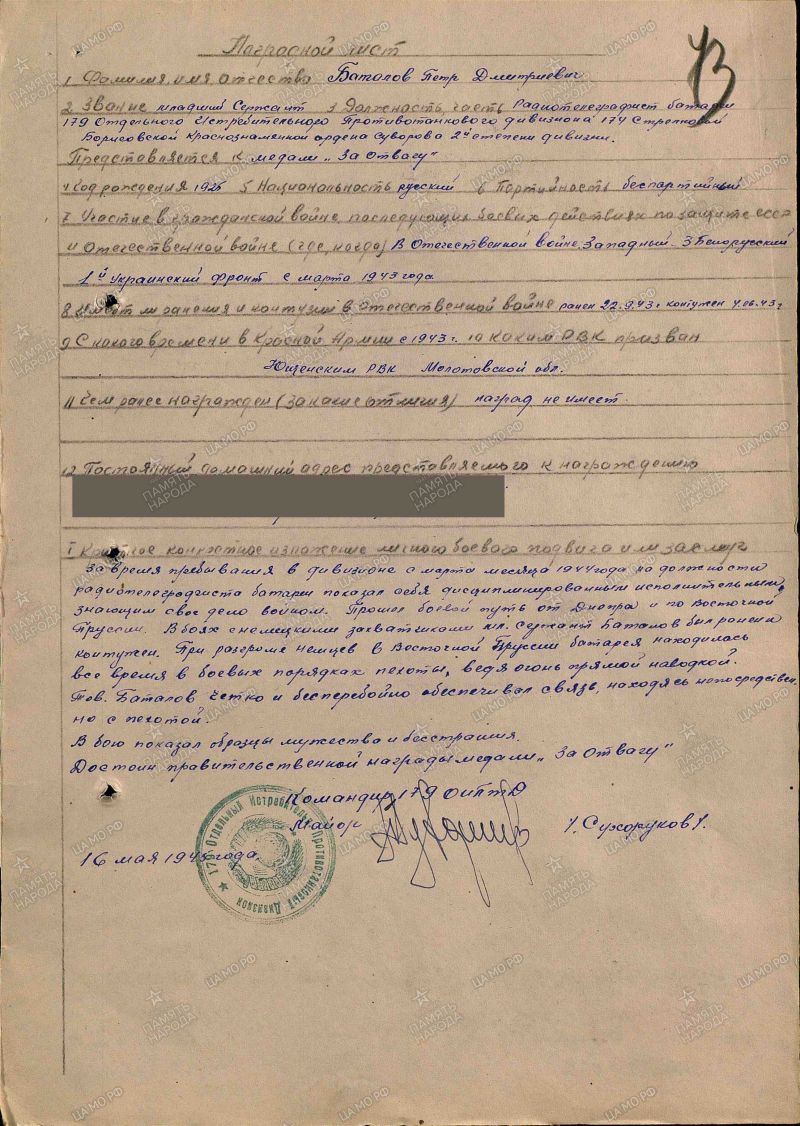 Наградной лист
13
1 Фамилия, имя, отчество Баталов Петр Дмитриевич
2 Звание младший Сержант 3 Должность, часть Радиотелеграфист батареи
179 Отдельного Истребительного Противотанкового дивизиона 174 Стрелковой
Борисовской Краснознаменной ордена Суворова 2й степени дивизии.
Представляется к медали „За Отвагу"
4 Год рождения 1925 5 Национальность русский 6 Партийность беспартийный
7 Участие в гражданской войне, последующих боевых действиях по защите СССР
и отечественной войне (где, когда) В Отечественной войне Западный - 3 Белорусский
1й Украинский фронт с марта 1943 года
8 Имеет ли ранения и контузии в отечественной войне ранен 22.9.43 г контужен 4.06.43 г
9 С какого времени в Красной Армии с 1943 г. 10 Каким РВК призван
РВК Молотовской обл.
11 Чем ранее награжден (за какие отличия) наград не имеет.
12 Постоянный домашний адрес представляемого к награждению
I Краткое конкретное изложение личного боевого подвига или заслуг
За время пребывания в дивизионе с марта месяца 1944 года на должности
радиотелеграфиста батареи показал себя дисциплинированным исполнительным,
знающим свое дело воином. Прошел боевой путь от Днепра и по Восточной
Пруссии. В боях с немецкими захватчиками мл. сержант Баталов был ранен и
контужен. При разгроме немцев в Восточной Пруссии батарея находилась
все время в боевых порядках пехоты, ведя огонь прямой наводкой.
Тов. Баталов четко и бесперебойно обеспечивал связь, находясь непосредствен
но с пехотой.
В бою показал образцы мужества и бесстрашия.
Достоин правительственной награды медали „За Отвагу"
Командир 179 ОИПТД
Майор /. Сухоруков /.
16 мая 1945 года
179 Отдельный Истребительный Противотанковый Дивизион
ПАМЯТЬ НАРОДА
ЦАМО.РФ